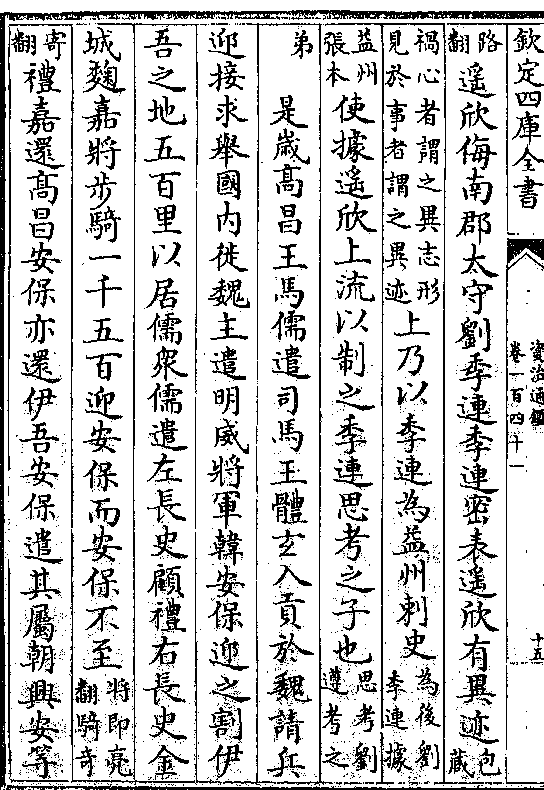 欽定四庫全書
資治通鑑
卷一百四十一
十五
路翻遥欣侮南郡太守劉季連季連密表遥欣有異迹包藏
禍心者謂之異志形見於事者謂之異迹上乃以季連為益州刺史為後劉季連據
益州張本使據遥欣上流以制之季連思考之子也思考劉遵考之
弟　是歲高昌王馬儒遣司馬王體玄入貢於魏請兵
迎接求舉國内徙魏主遣明威將軍韓安保迎之割伊
吾之地五百里以居儒衆儒遣左長史顧禮右長史金
城麴嘉將步騎一千五百迎安保而安保不至將即亮翻騎竒
寄翻禮嘉還高昌安保亦還伊吾安保遣其屬朝興安等